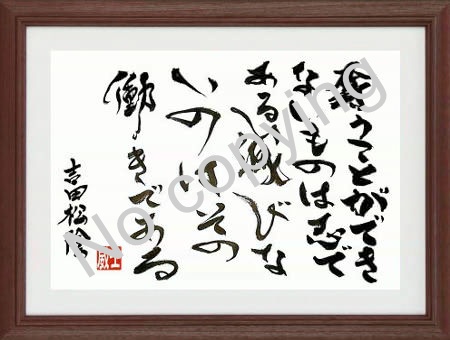 奪うことができ
ないものは志で
ある滅びな
いのはその
働きである
吉田松陰
No copying